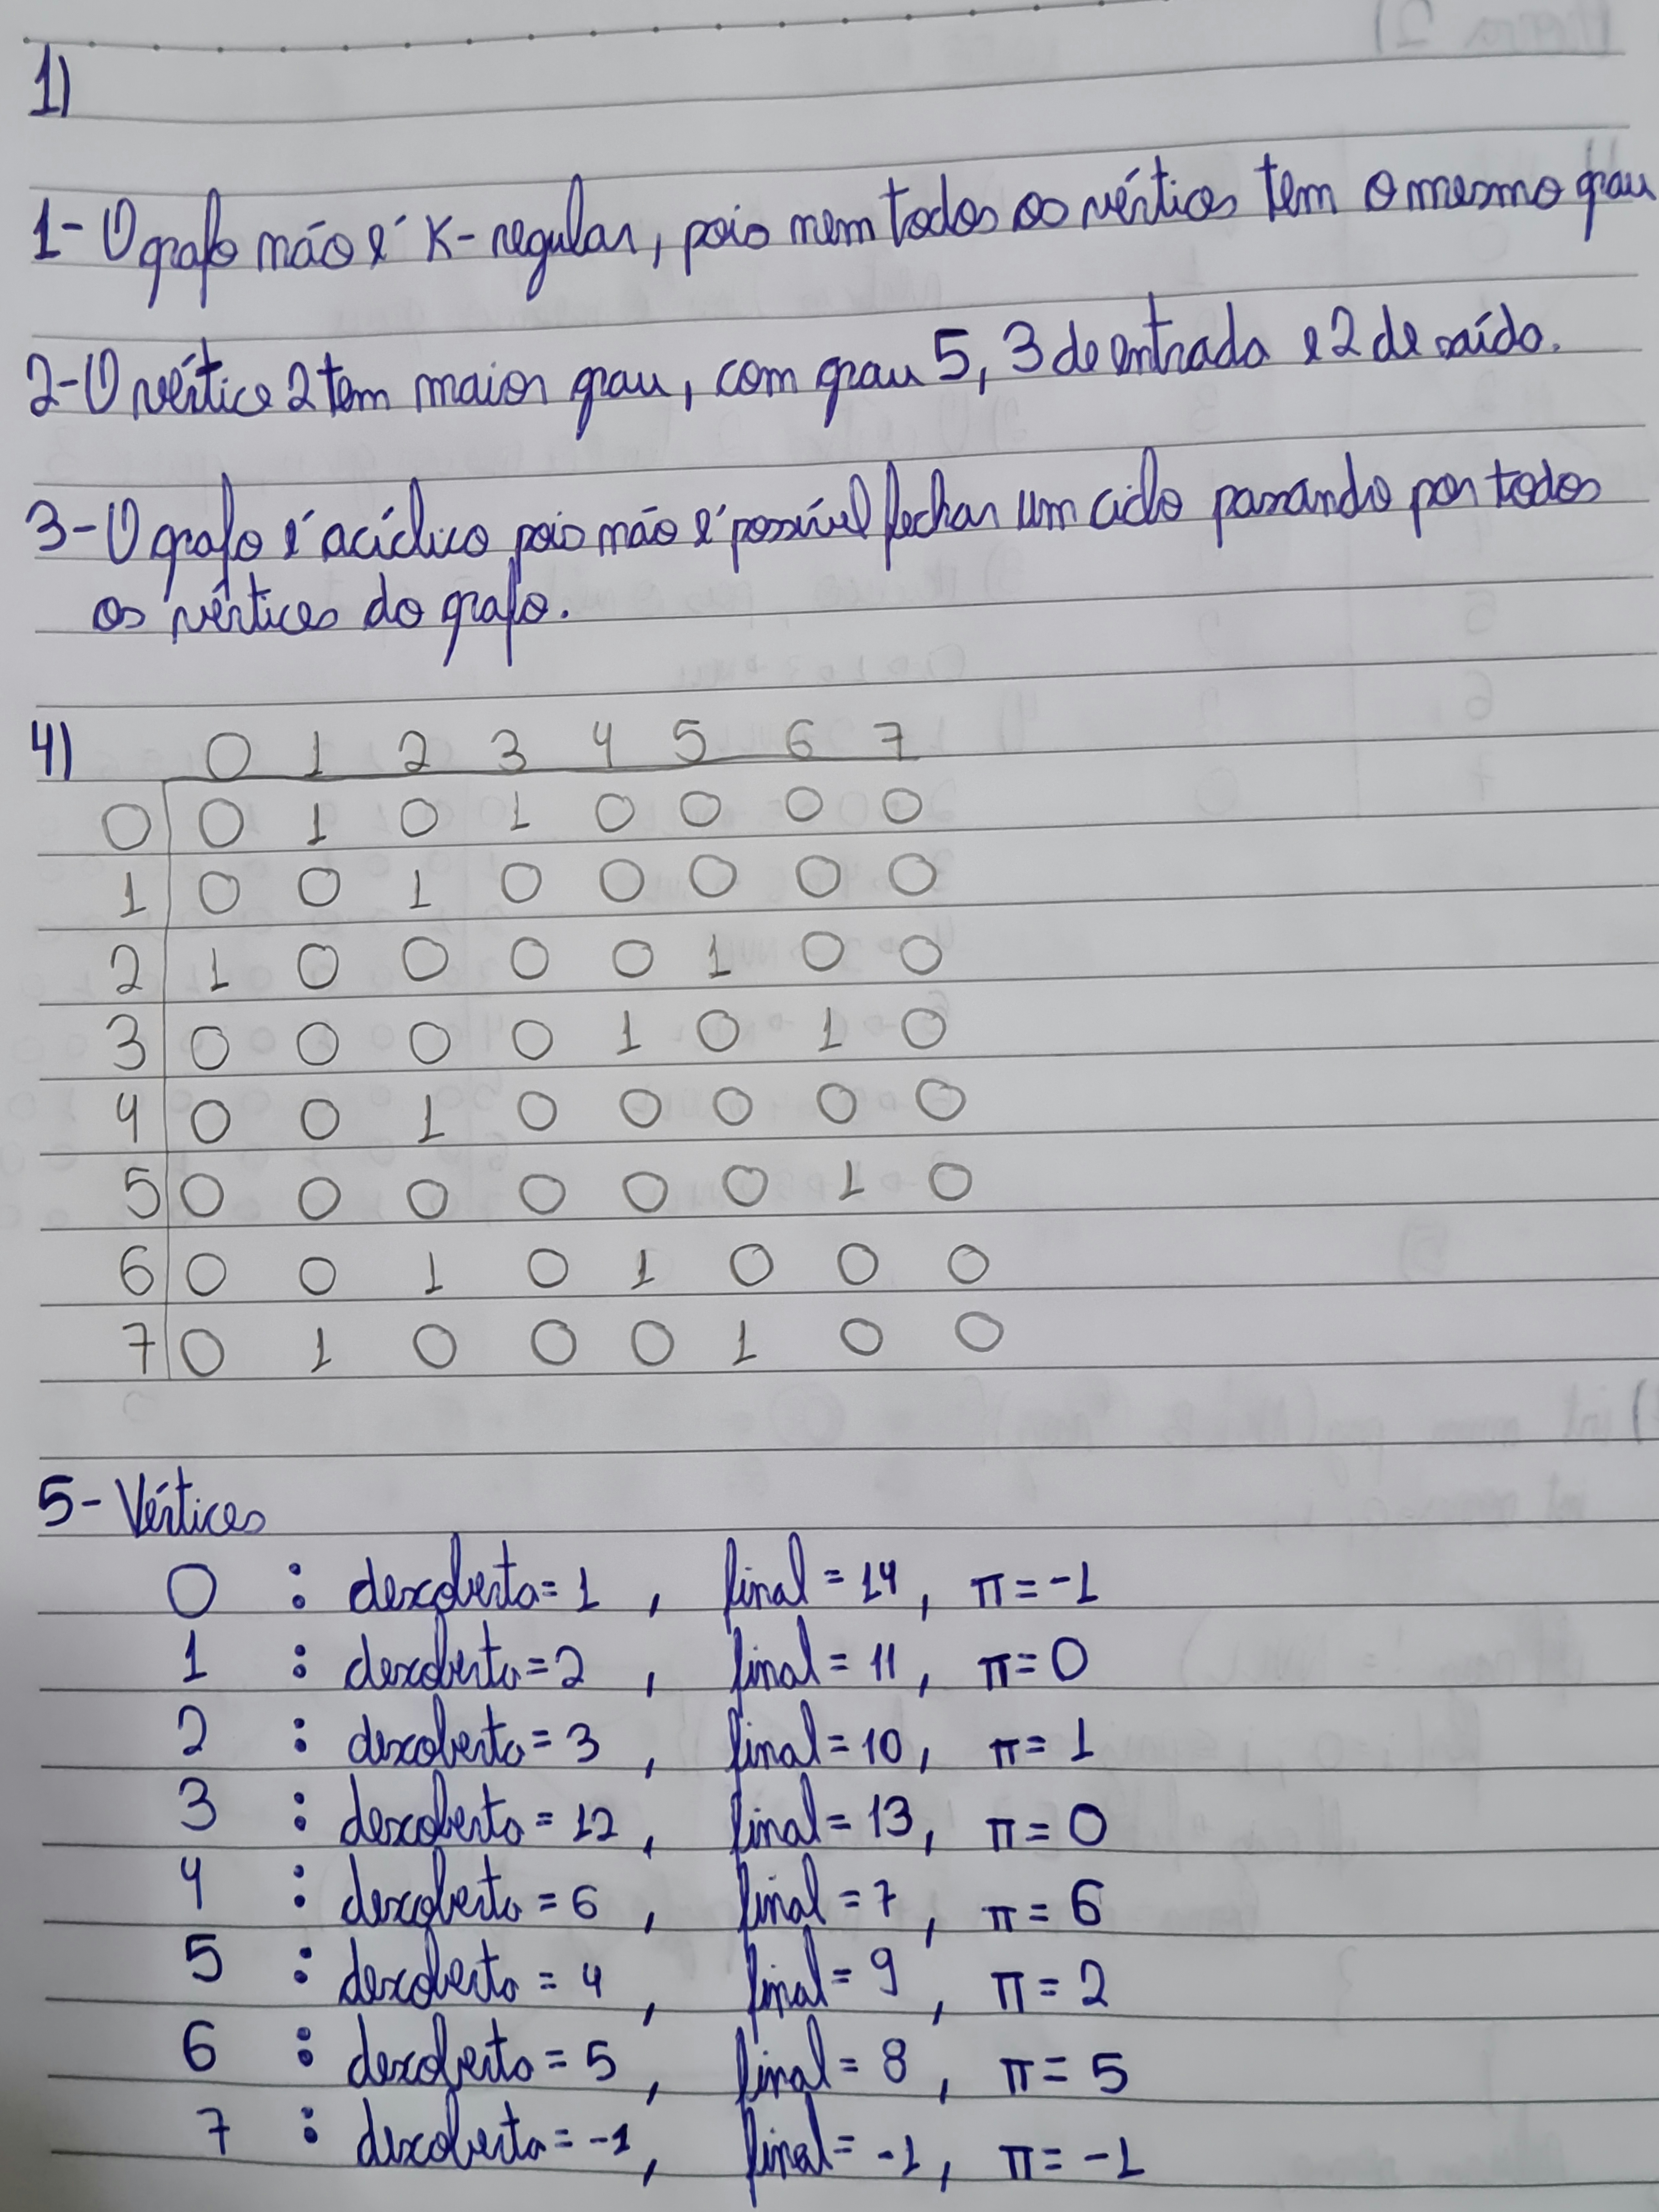 1)
1- O grafo não é K-regular, pois nem todos os vértices tem o mesmo grau
2- O vértice 2 tem maior grau, com grau 5, 3 de entrada e 2 de saída.
3- O grafo é acíclico pois não é possível fechar um ciclo passando por todos
os vértices do grafo.
4) 0 1 2 3 4 5 6 7
0 0 1 0 1 0 0 0 0
1 0 0 1 0 0 0 0 0
2 1 0 0 0 0 1 0 0
3 0 0 0 0 1 0 1 0
4 0 0 1 0 0 0 0 0
5 0 0 0 0 0 0 1 0
6 0 0 1 0 1 0 0 0
7 0 1 0 0 0 1 0 0
5- Vértices
0 : descoberta = 1 , final = 14 , π = -1
1 : descoberta = 2 , final = 11 , π = 0
2 : descoberta = 3 , final = 10 , π = 1
3 : descoberta = 12 , final = 13 , π = 0
4 : descoberta = 6 , final = 7 , π = 6
5 : descoberta = 4 , final = 9 , π = 2
6 : descoberta = 5 , final = 8 , π = 5
7 : descoberta = -1 , final = -1 , π = -1